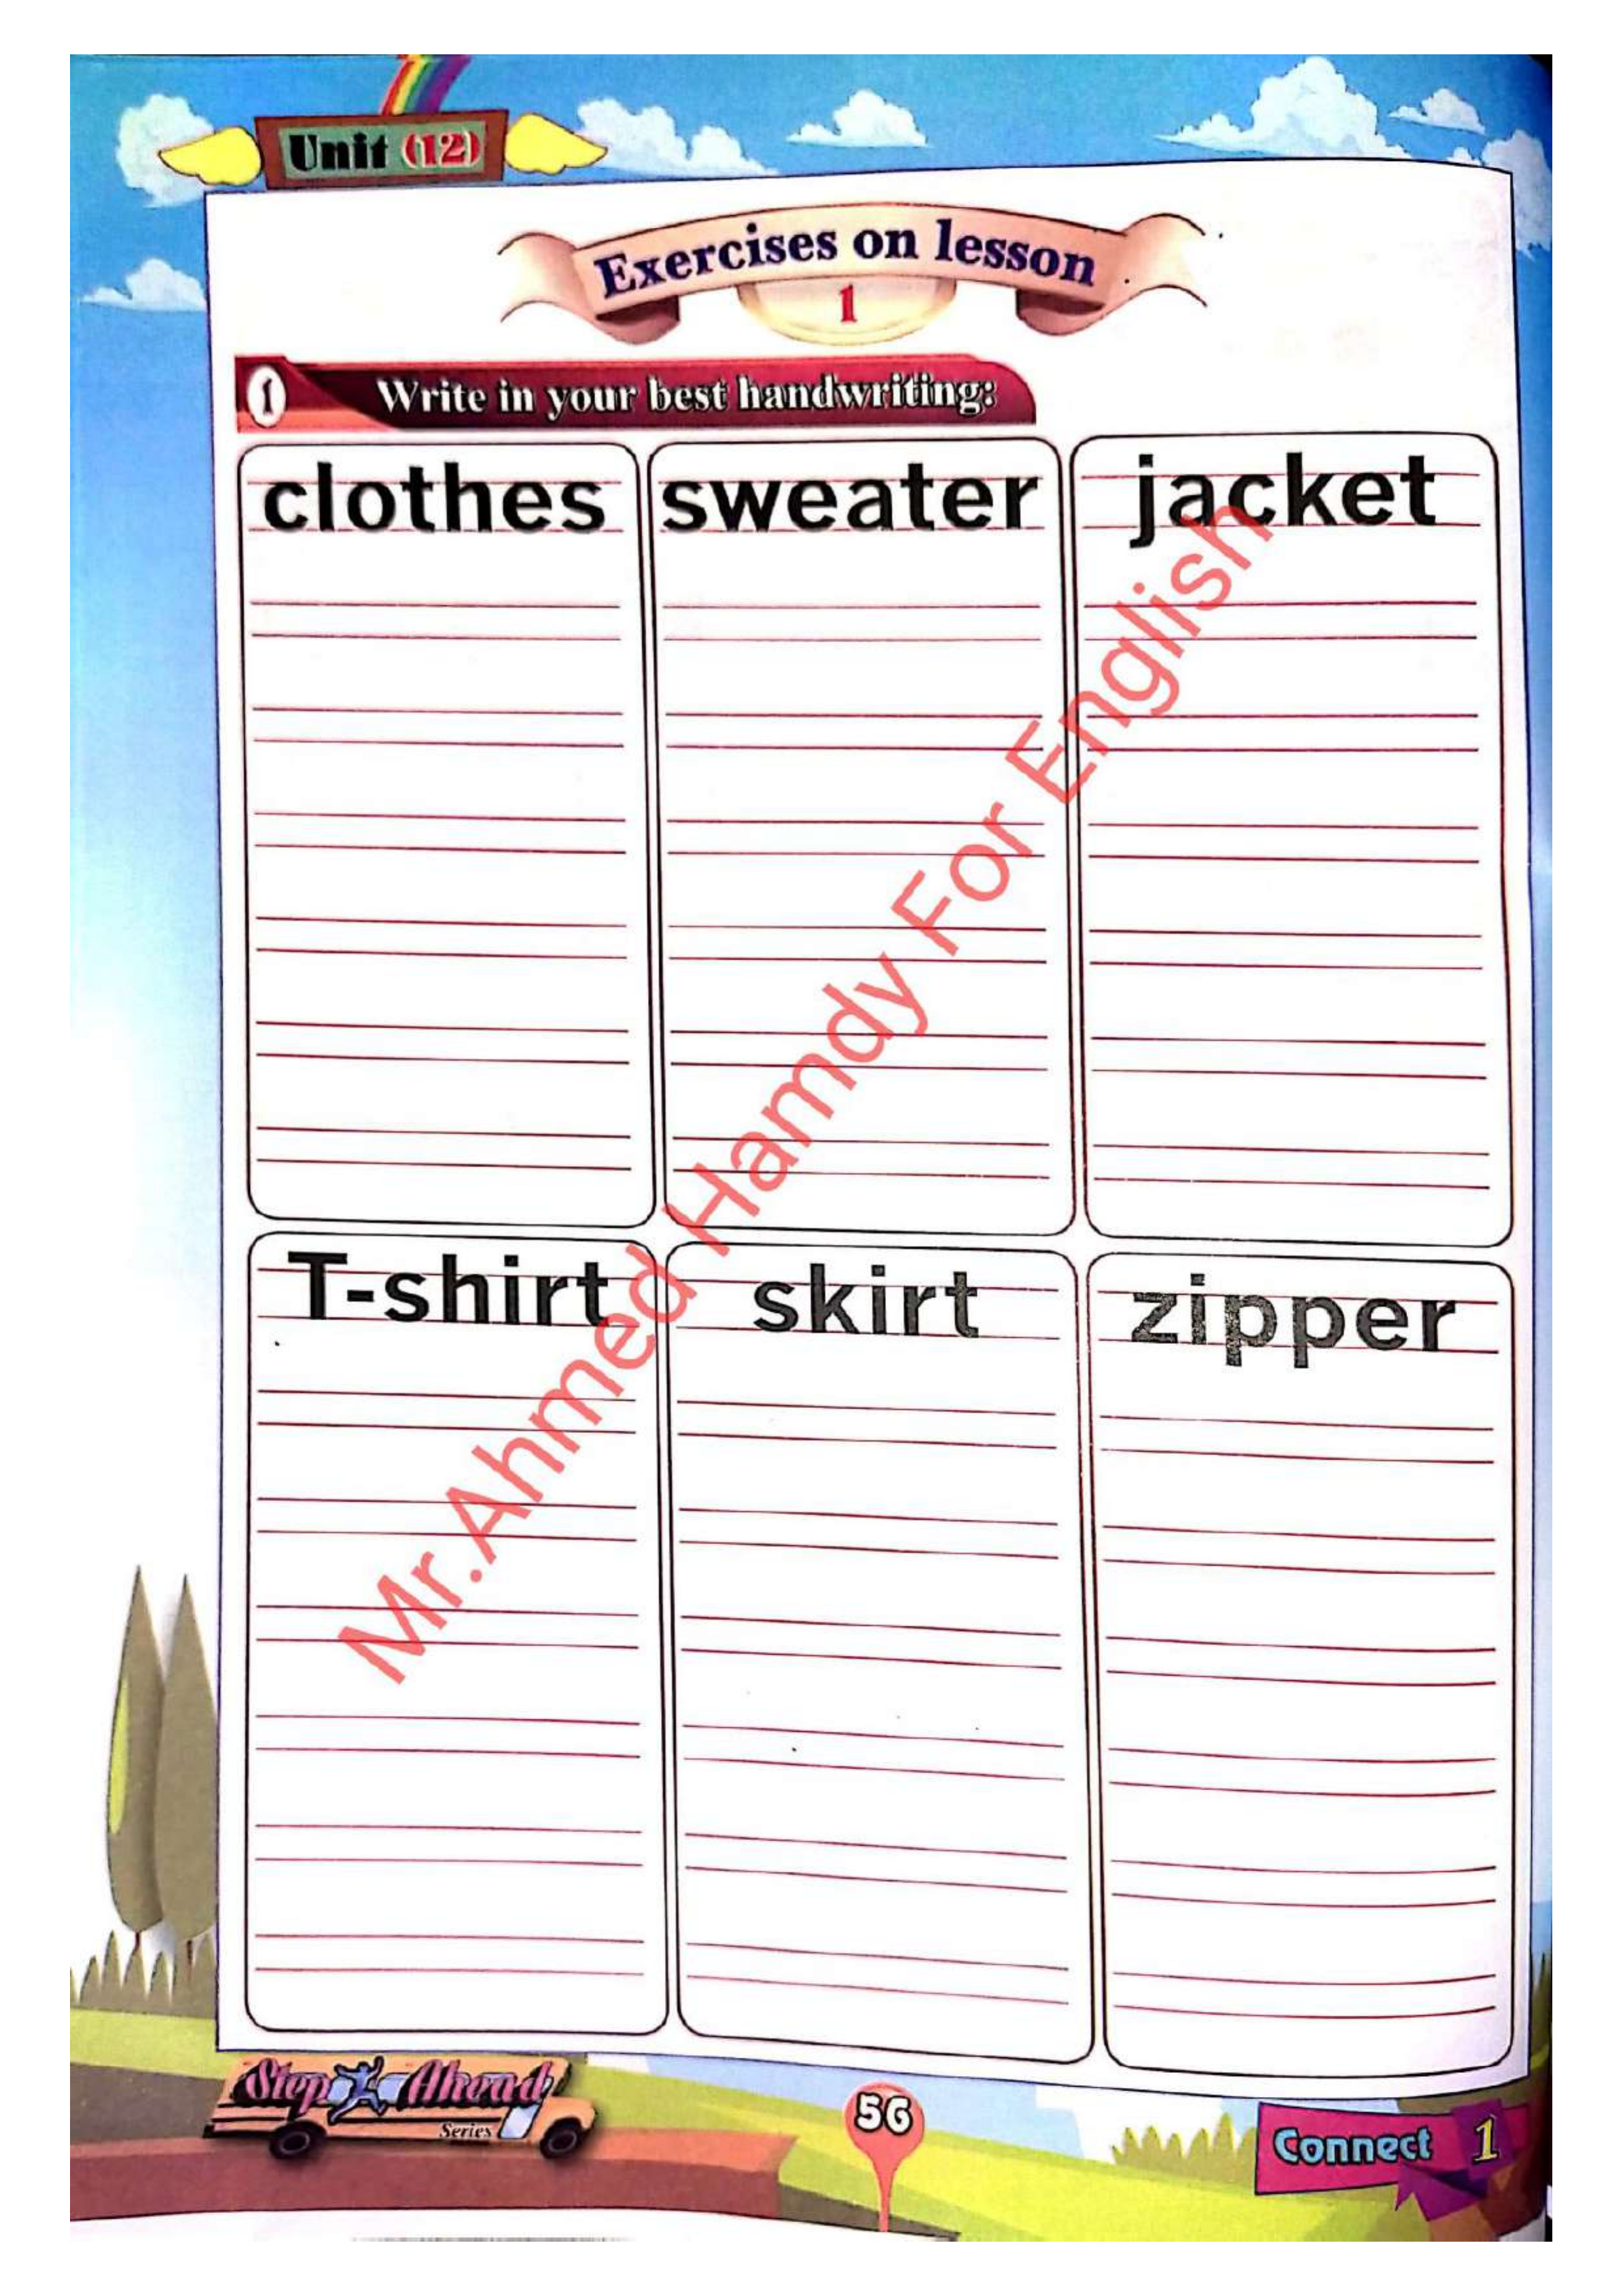 Unit (12)
Exercises on lesson
1
1 Write in your best handwriting:
clothes sweater jacket
T-shirt skirt zipper
Mr.Ahmed Hamdy For English
Step Ahead
Series
56
Connect 1